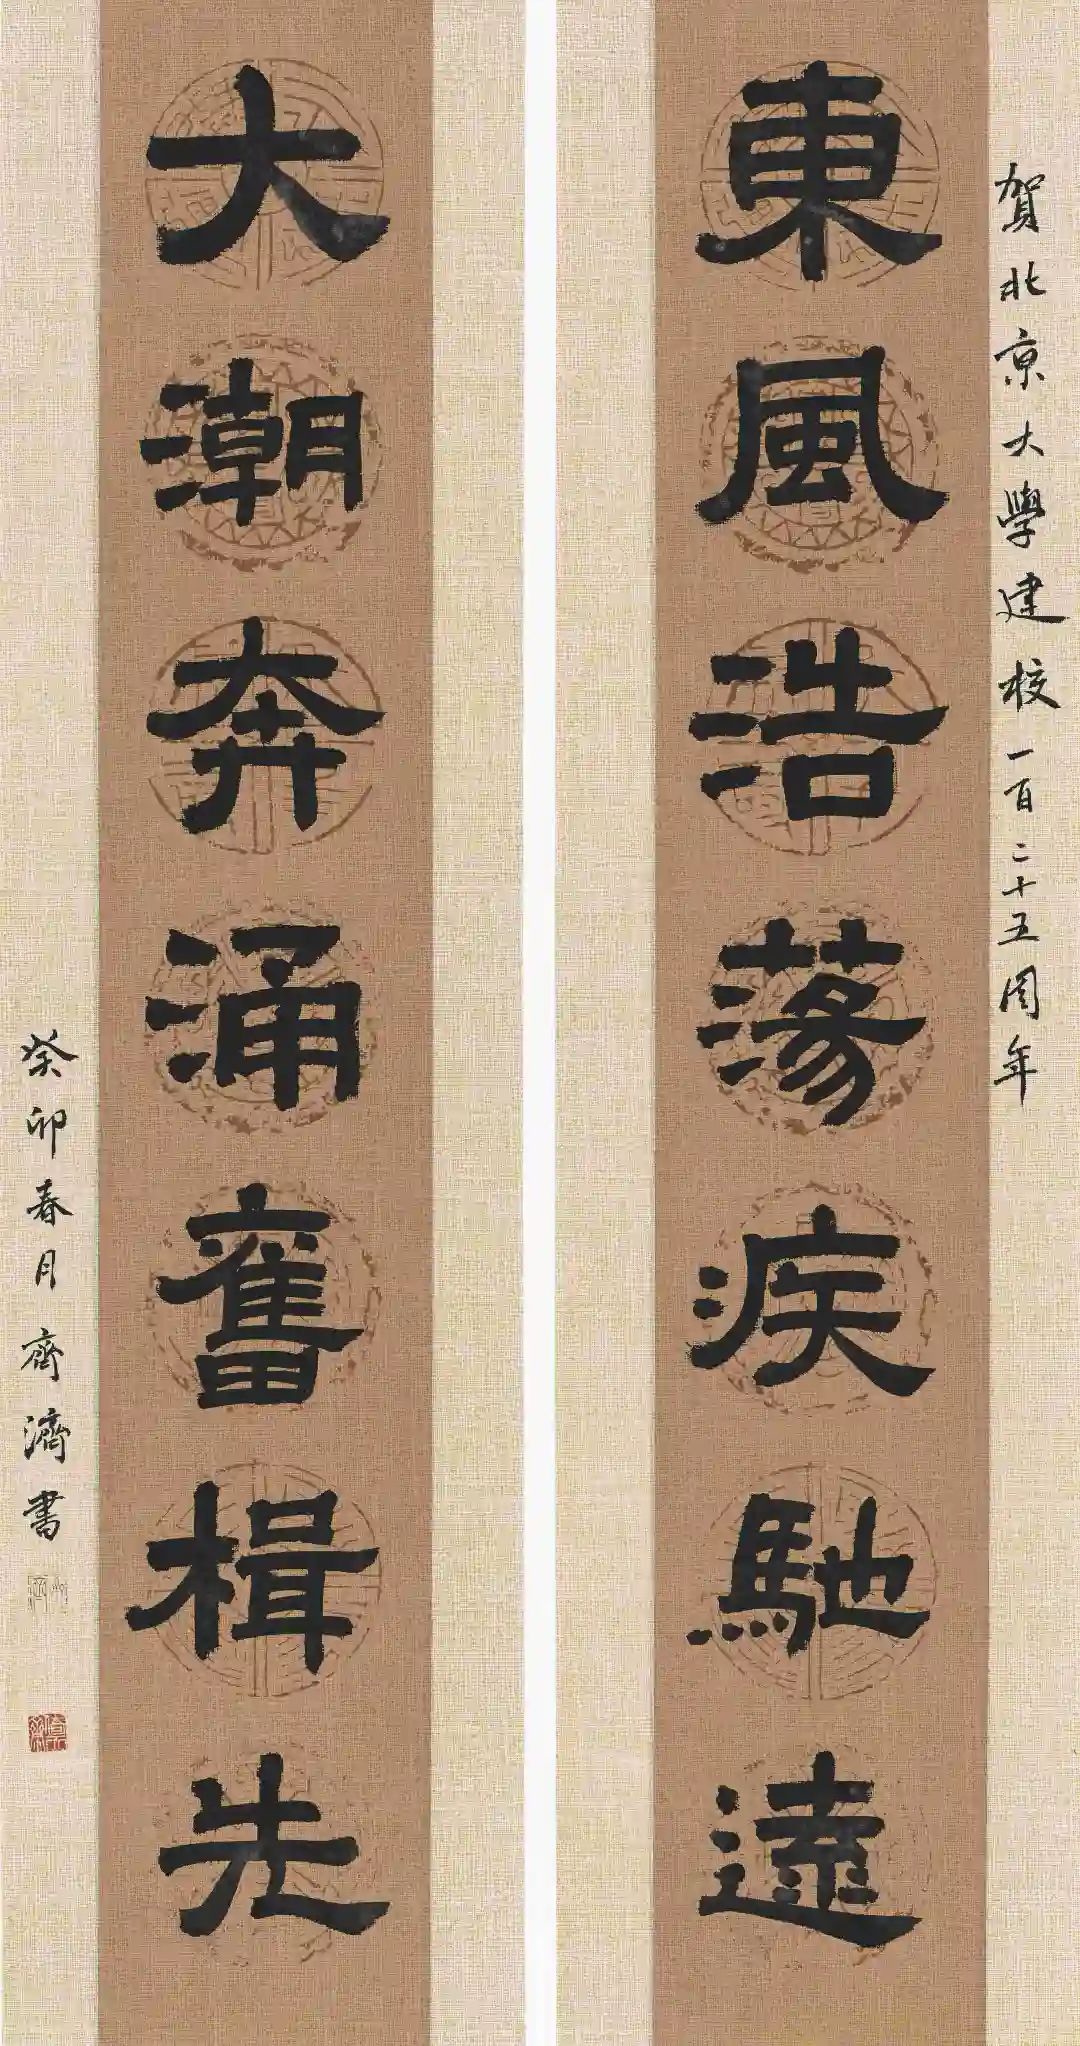 賀北京大學建校一百二十五周年
東風浩蕩疾馳遠
大潮奔涌奮楫先
癸卯春月齊濟書